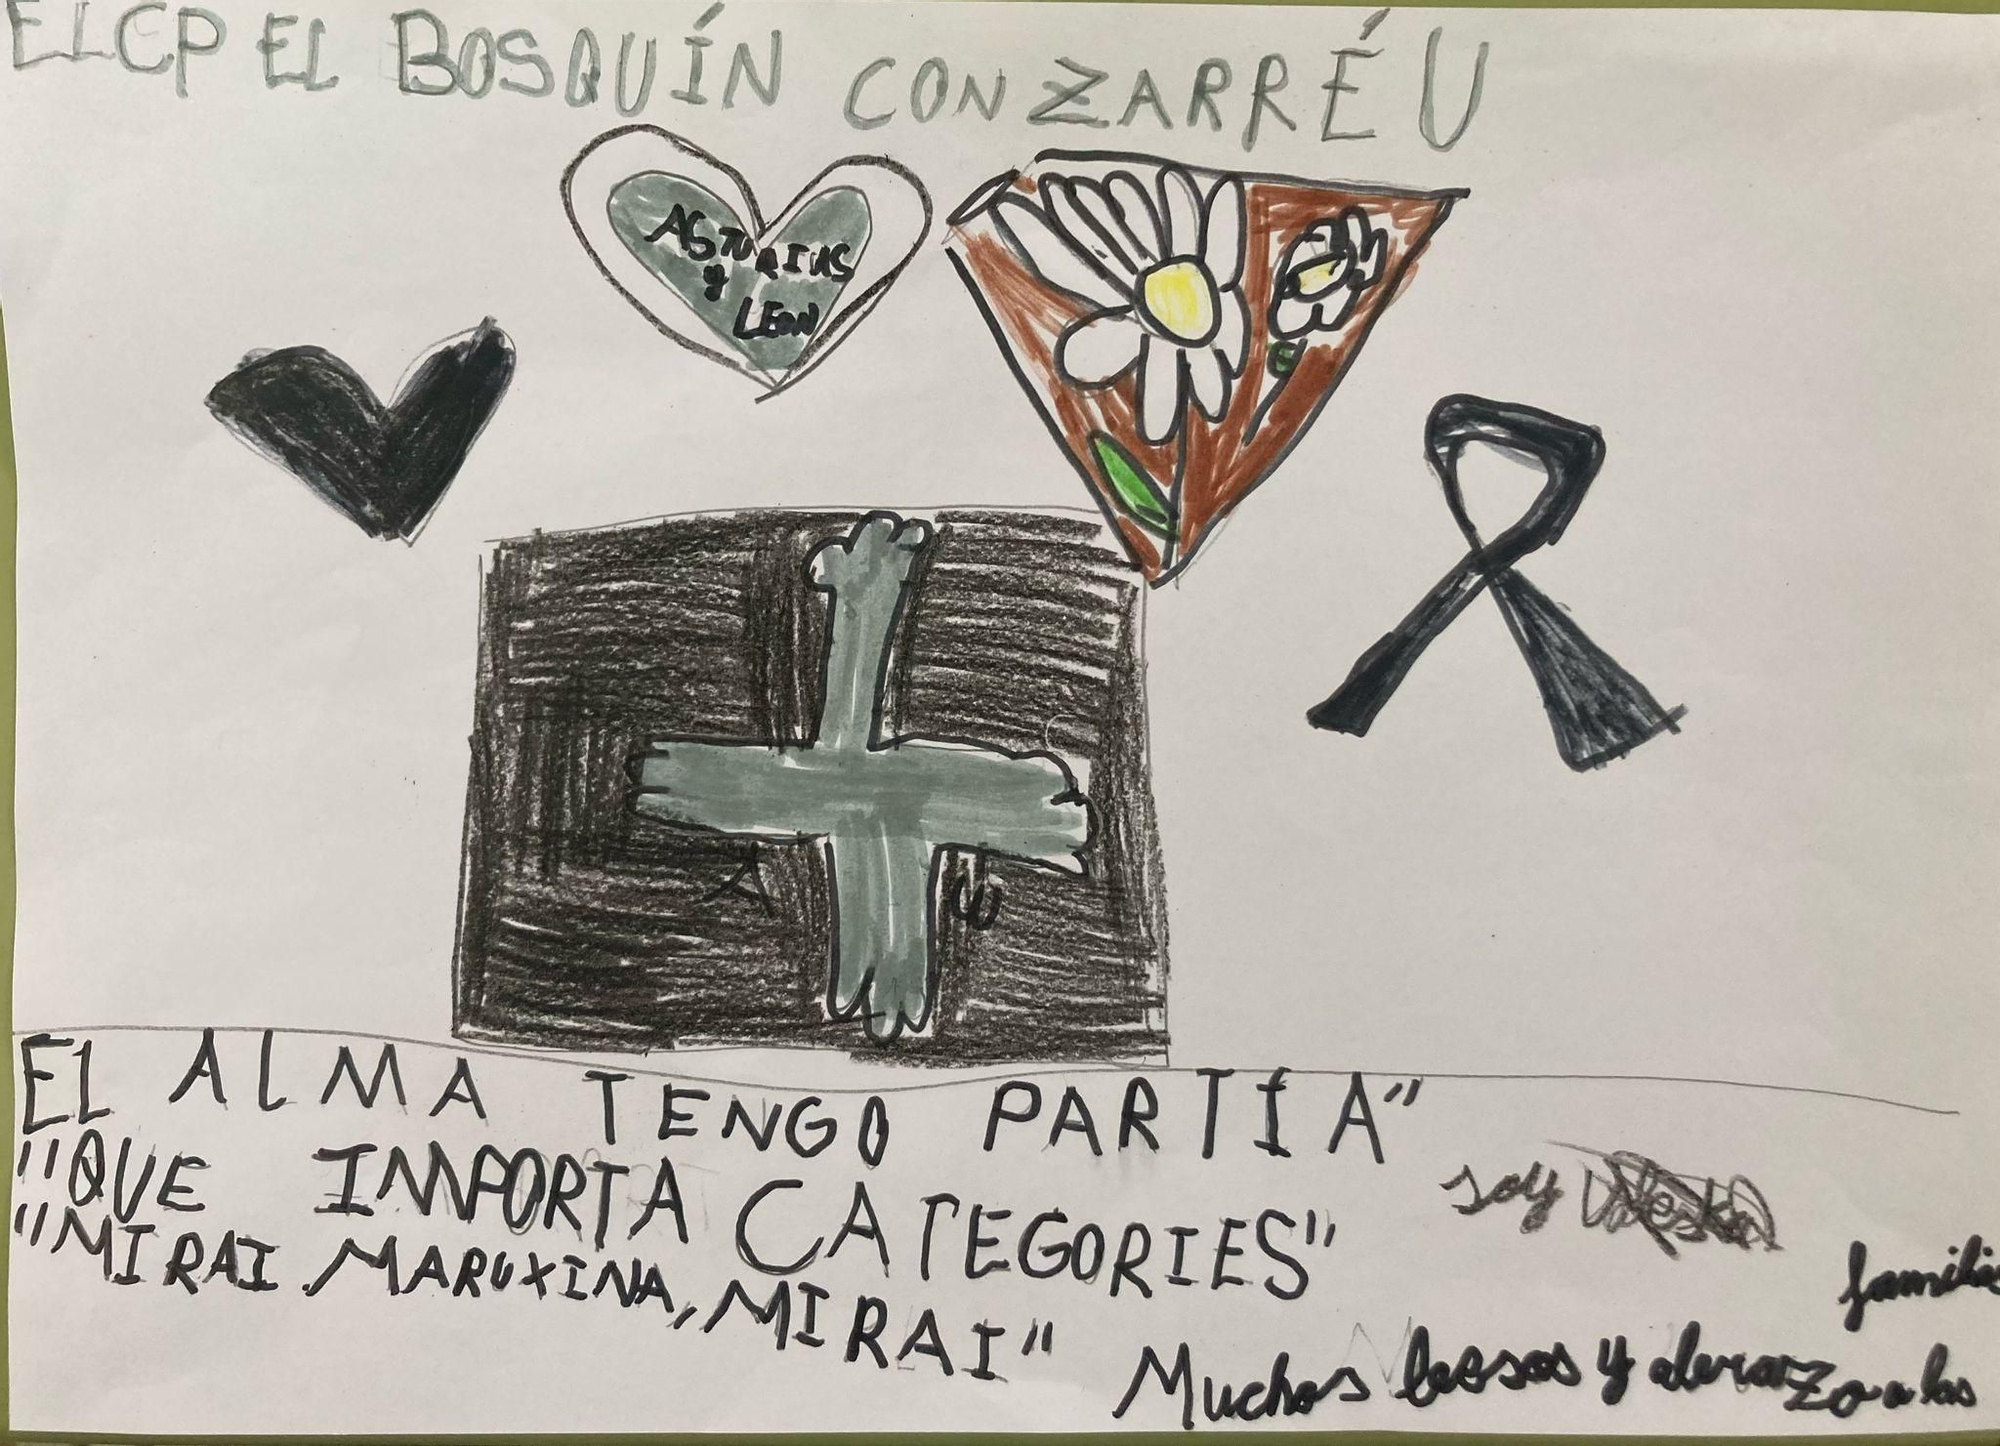 EL CP EL BOSQUÍN CON ZARRÉU
ASTURIAS
y
LEON
A ω
EL ALMA TENGO PARTÍA"
"QUE IMPORTA CATEGORIES"
"MIRAI MARUXINA, MIRAI"
soy
Muchos bessos y abrazo a las
familias